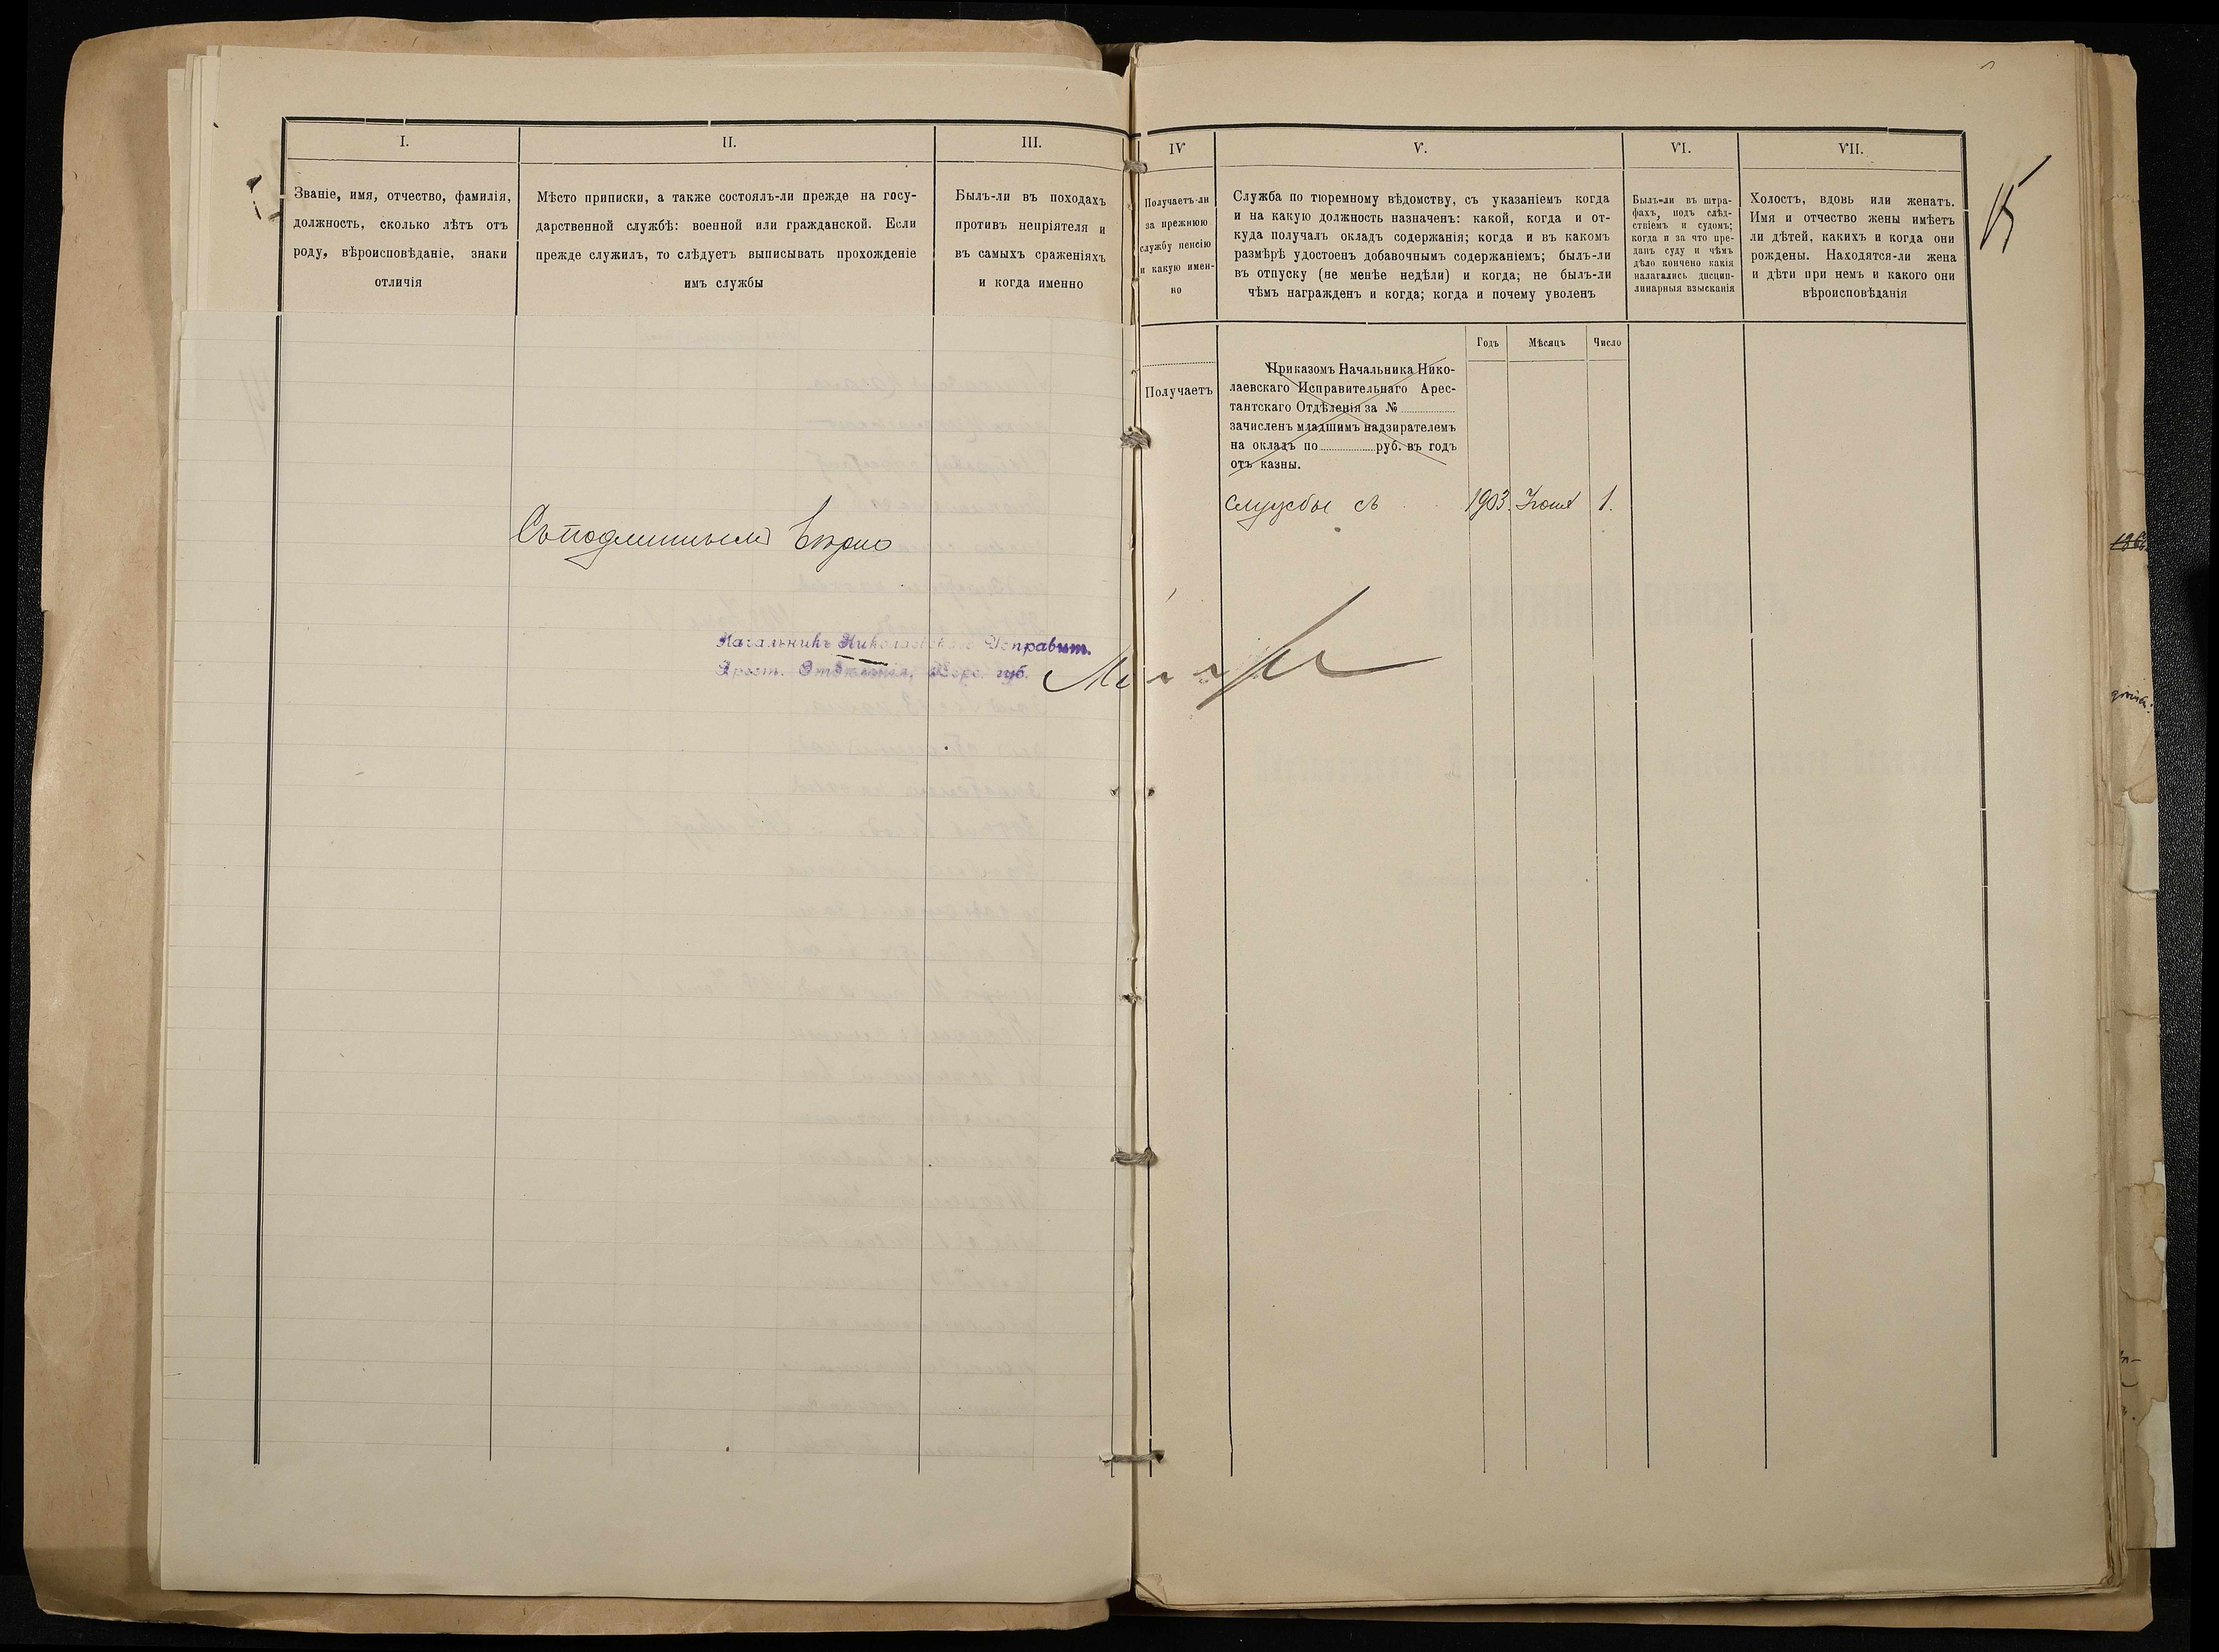 I.
Званіе, имя, отчество, фамилія,
должность, сколько лѣтъ отъ
роду, вѣроисповѣданіе, знаки
отличія
II.
Мѣсто приписки, а также состоялъ-ли прежде на госу-
дарственной службѣ: военной или гражданской. Если
прежде служилъ, то слѣдуетъ выписывать прохожденіе
имъ службы
III.
Былъ-ли въ походахъ
противъ непріятеля и
въ самыхъ сраженіяхъ
и когда именно
Съ подлиннымъ вѣрно
Начальникъ Николаевскаго Исправит.
Арест. Отдѣленія, Херс. губ.
IV
Получаетъ-ли
за прежнюю
службу пенсію
и какую имен-
но
Получаетъ
V.
Служба по тюремному вѣдомству, съ указаніемъ когда
и на какую должность назначенъ: какой, когда и от-
куда получалъ окладъ содержанія; когда и въ какомъ
размѣрѣ удостоенъ добавочнымъ содержаніемъ; былъ-ли
въ отпуску (не менѣе недѣли) и когда; не былъ-ли
чѣмъ награжденъ и когда; когда и почему уволенъ
Годъ Мѣсяцъ Число
Приказомъ Начальника Нико-
лаевскаго Исправительнаго Арес-
тантскаго Отдѣленія за №
зачисленъ младшимъ надзирателемъ
на окладъ по руб. въ годъ
отъ казны.
службы съ 1903 Іюня 1.
VI.
Былъ-ли въ штра-
фахъ, подъ слѣд-
ствіемъ и судомъ;
когда и за что пре-
данъ суду и чѣмъ
дѣло кончено какія
налагались дисцип-
линарныя взысканія
VII.
Холостъ, вдовъ или женатъ.
Имя и отчество жены имѣетъ
ли дѣтей, какихъ и когда они
рождены. Находятся-ли жена
и дѣти при немъ и какого они
вѣроисповѣданія
15